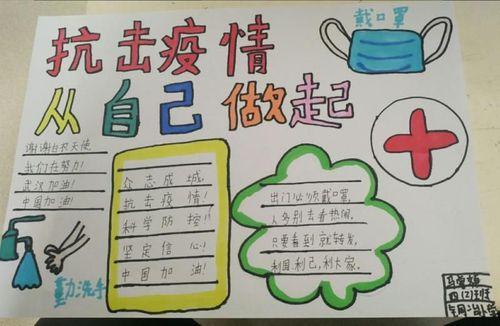 抗击疫情
从自己做起
戴口罩
谢谢白衣天使
我们在努力!
武汉加油!
中国加油!
众志成城,
抗击疫情!
科学防控!
坚定信心!
中国加油!
出门必须戴口罩,
人多别去看热闹,
只要看到就转发,
利国利己,利大家.
勤洗手
四(2)班